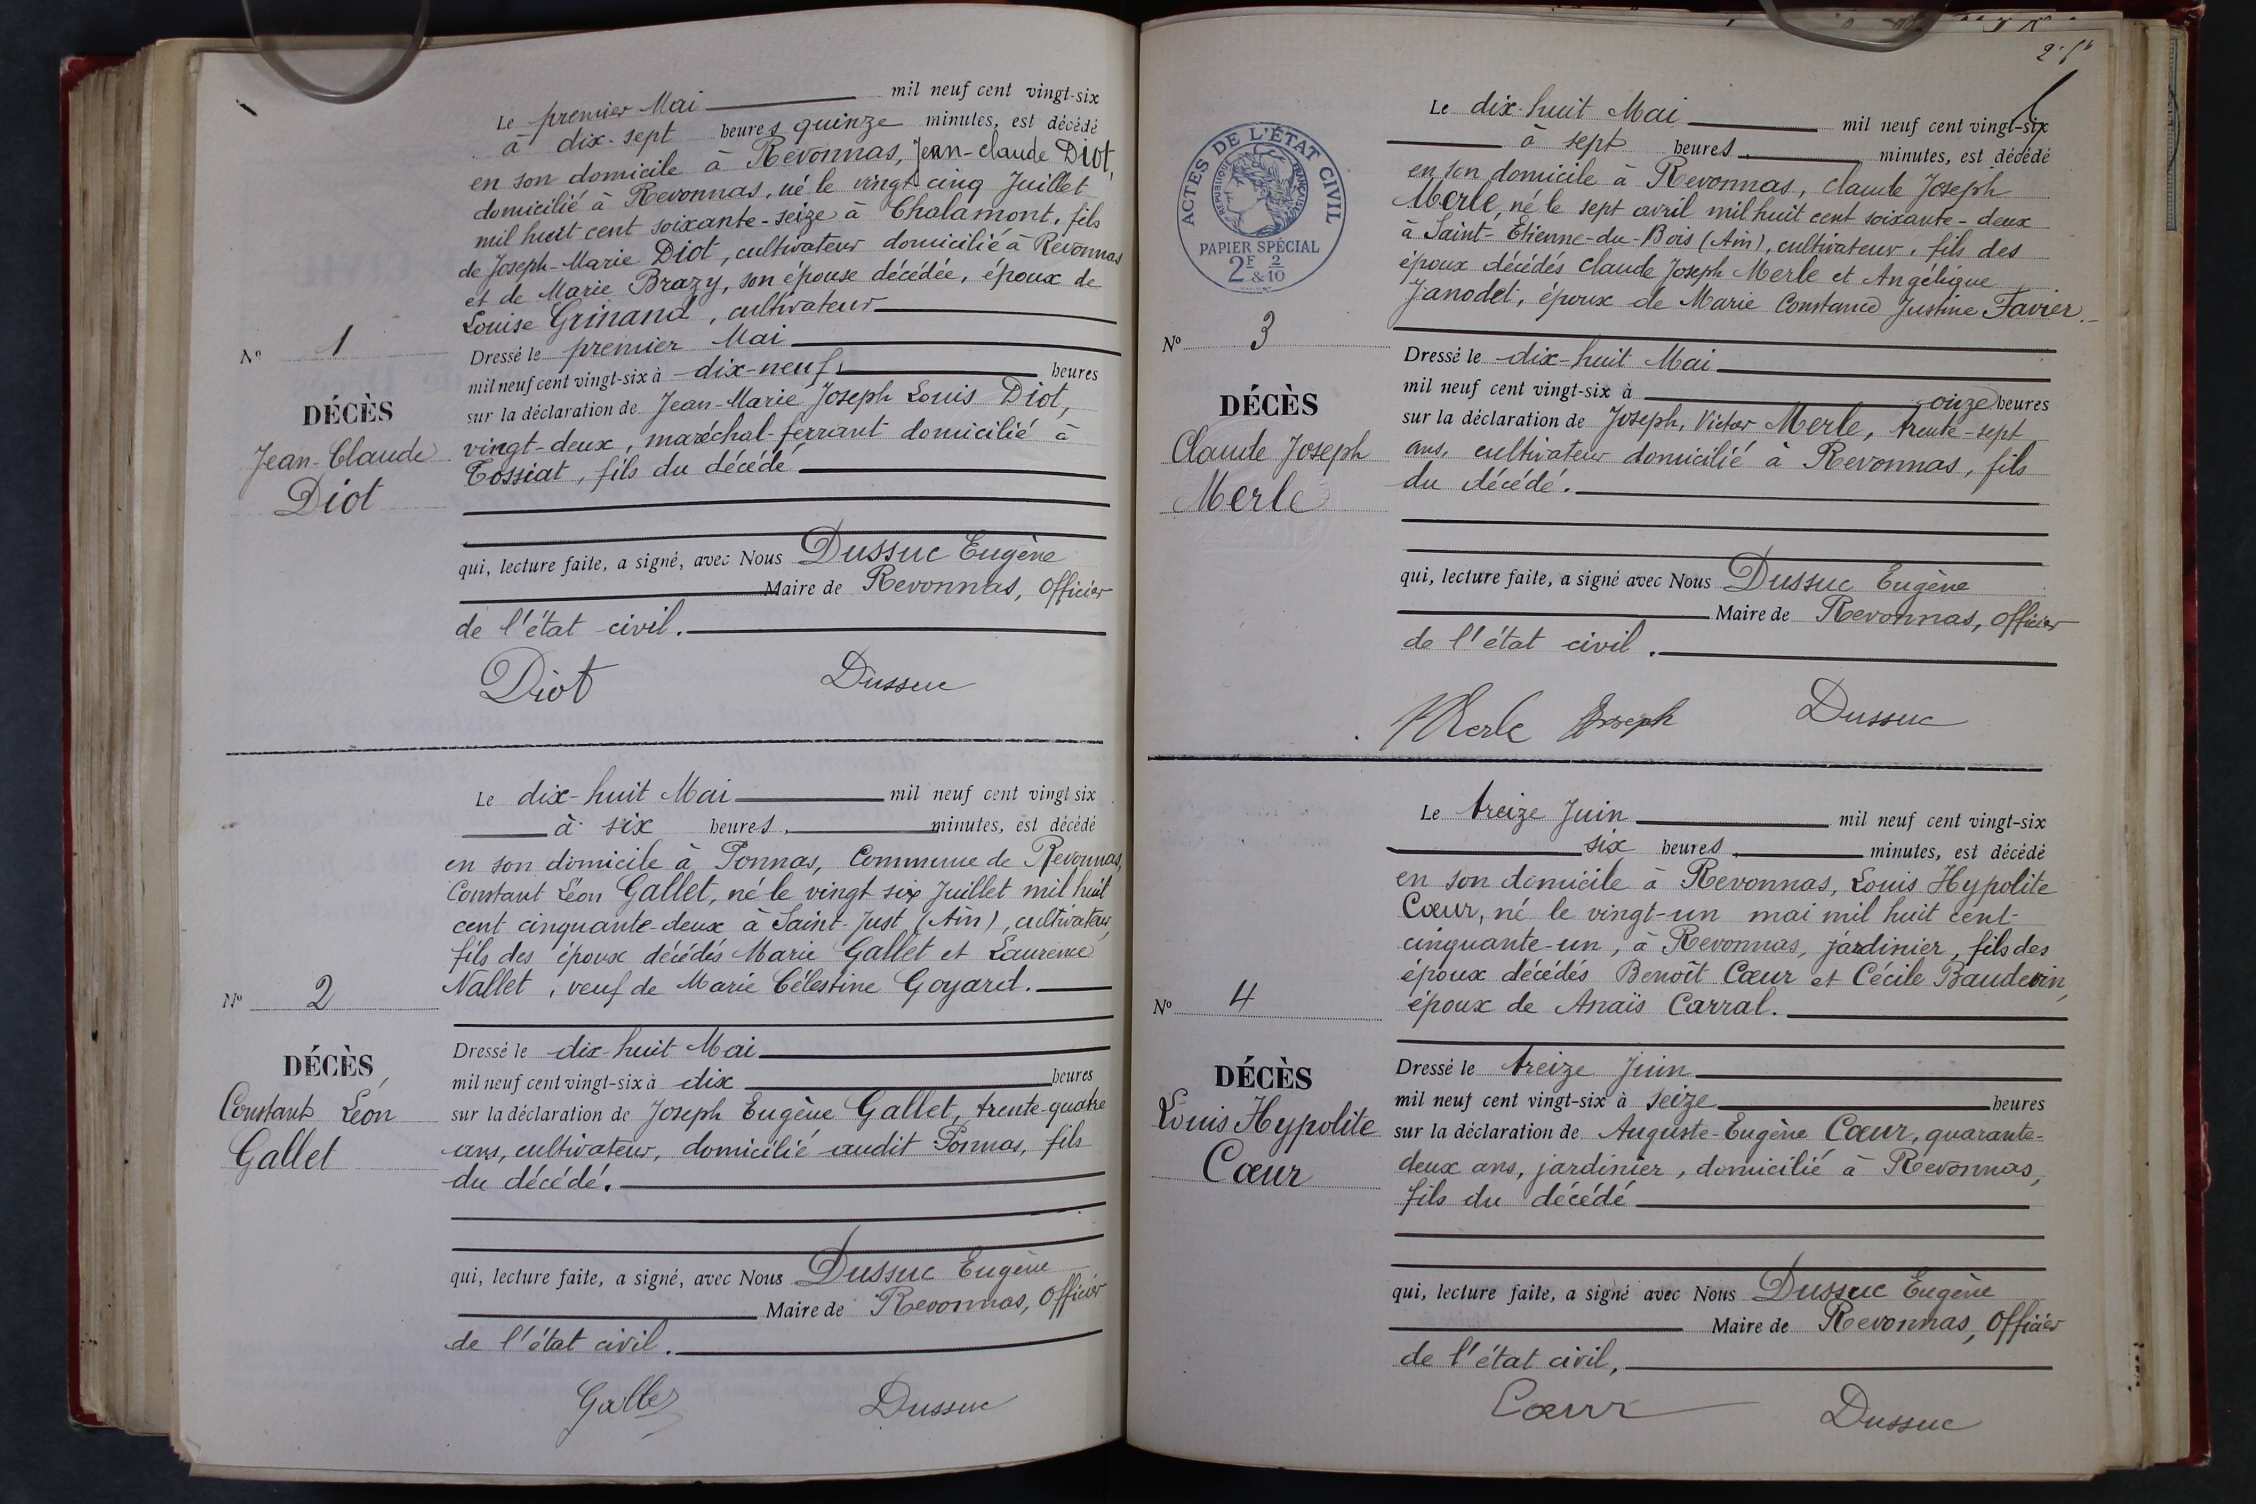 Le premier Mai mil neuf cent vingt-six
à dix-sept heures quinze minutes, est décédé
en son domicile à Revonnas, Jean-Claude Diot,
domicilié à Revonnas, né le vingt cinq Juillet
mil huit cent soixante-seize à Chalamont, fils
de Joseph-Marie Diot, cultivateur domicilié à Revonnas
et de Marie Brazy, son épouse décédée, époux de
Louise Grinand, cultivateur
Nº 1
DÉCÈS
Jean-Claude
Diot
Dressé le premier Mai
mil neuf cent vingt-six à dix-neuf heures
sur la déclaration de Jean-Marie Joseph Louis Diot,
vingt-deux, maréchal-ferrant domicilié à
Tossiat, fils du décédé
qui, lecture faite, a signé, avec Nous Dussuc Eugène
Maire de Revonnas, Officier
de l'état civil.
Diot Dussuc
Le dix-huit Mai mil neuf cent vingt six
à six heures minutes, est décédé
en son domicile à Ponnas, Commune de Revonnas,
Constant Léon Gallet, né le vingt six Juillet mil huit
cent cinquante-deux à Saint-Just (Ain), cultivateur,
fils des époux décédés Marie Gallet et Laurence
Nallet, veuf de Marie Célestine Goyard.
Nº 2
DÉCÈS
Constant Léon
Gallet
Dressé le dix-huit Mai
mil neuf cent vingt-six à dix heures
sur la déclaration de Joseph Eugène Gallet, trente-quatre
ans, cultivateur, domicilié audit Ponnas, fils
du décédé.
qui, lecture faite, a signé, avec Nous Dussuc Eugène
Maire de Revonnas, Officier
de l'état civil.
Gallet Dussuc
ACTES DE L'ÉTAT CIVIL
RÉPUBLIQUE FRANÇAISE
PAPIER SPÉCIAL
2F & 2/10
Le dix-huit Mai mil neuf cent vingt-six
à sept heures minutes, est décédé
en son domicile à Revonnas, Claude Joseph
Merle, né le sept avril mil huit cent soixante-deux
à Saint-Etienne-du-Bois (Ain), cultivateur, fils des
époux décédés Claude Joseph Merle et Angélique
Janodet, époux de Marie Constance Justine Favier.
Nº 3
DÉCÈS
Claude Joseph
Merle
Dressé le dix-huit Mai
mil neuf cent vingt-six à onze heures
sur la déclaration de Joseph, Victor Merle, trente-sept
ans, cultivateur domicilié à Revonnas, fils
du décédé.
qui, lecture faite, a signé avec Nous Dussuc Eugène
Maire de Revonnas, Officier
de l'état civil.
Merle Joseph Dussuc
Le treize Juin mil neuf cent vingt-six
six heures minutes, est décédé
en son domicile à Revonnas, Louis Hypolite
Cœur, né le vingt-un mai mil huit cent-
cinquante-un, à Revonnas, jardinier, fils des
époux décédés Benoît Cœur et Cécile Baudevin,
époux de Anaïs Carral.
Nº 4
DÉCÈS
Louis Hypolite
Cœur
Dressé le treize Juin
mil neuf cent vingt-six à seize heures
sur la déclaration de Auguste-Eugène Cœur, quarante-
deux ans, jardinier, domicilié à Revonnas,
fils du décédé
qui, lecture faite, a signé avec Nous Dussuc Eugène
Maire de Revonnas, Officier
de l'état civil,
Cœur Dussuc